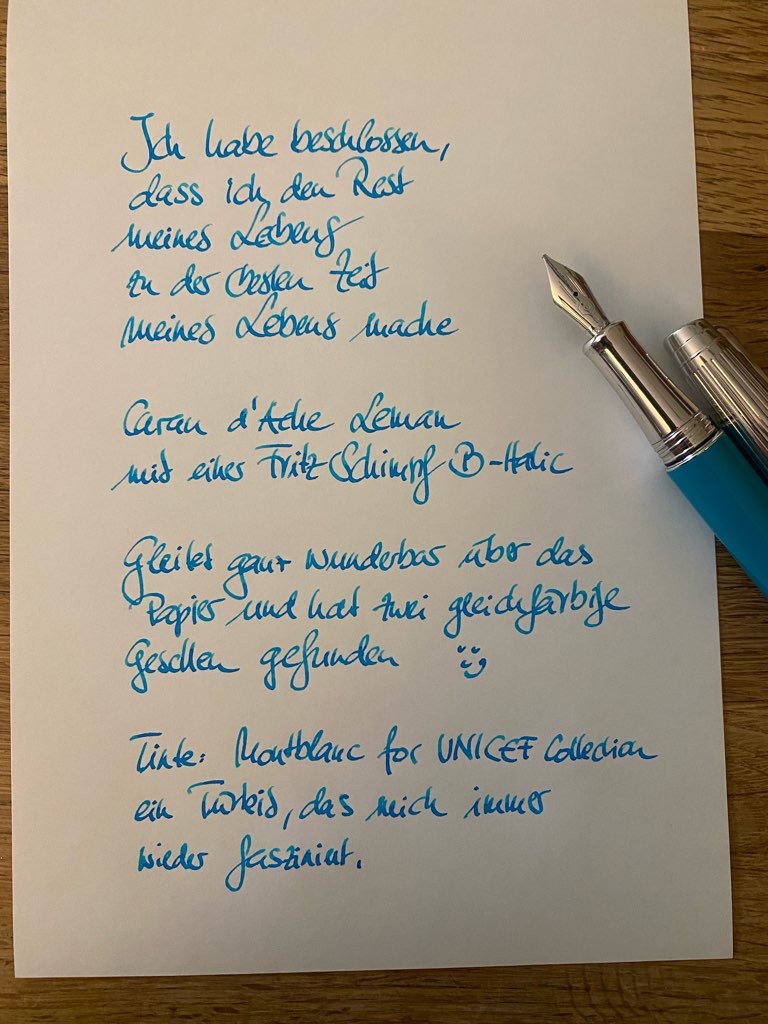 Ich habe beschlossen,
dass ich den Rest
meines Lebens
zu der besten Zeit
meines Lebens mache
Caran d'Ache Leman
mit einer Fritz Schimpf B-Italic
Gleitet ganz wunderbar über das
Papier und hat zwei gleichfarbige
Gesellen gefunden
Tinte: Montblanc for UNICEF Collection
ein Türkis, das mich immer
wieder fasziniert.